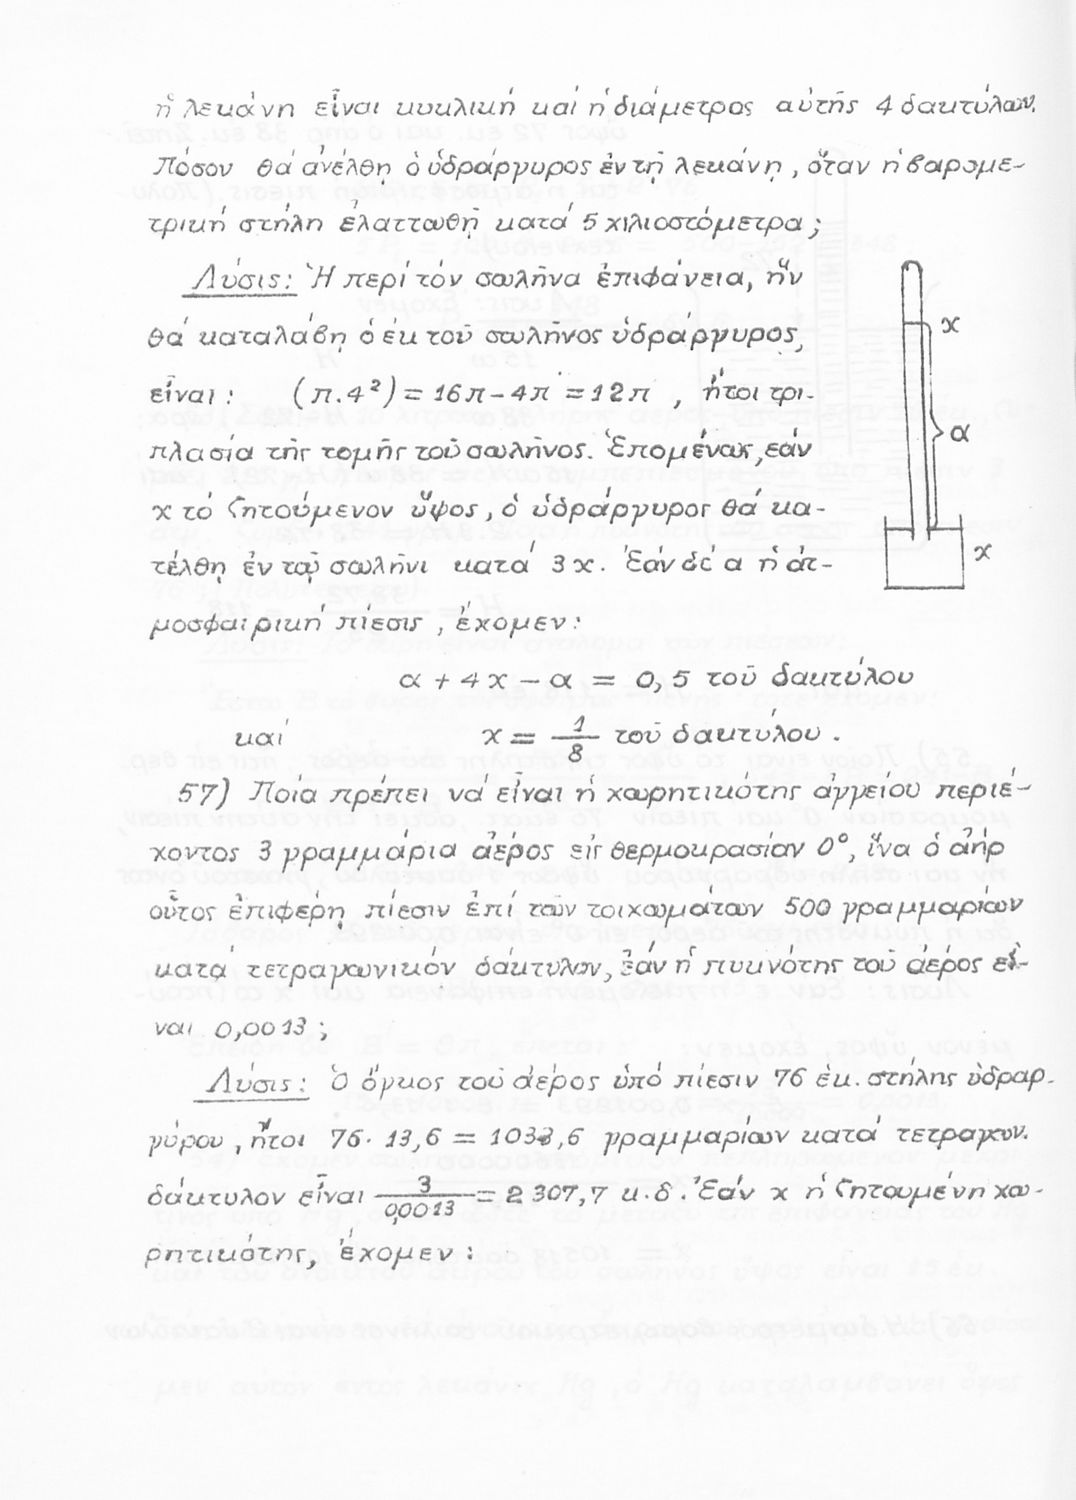 ἡ λεκάνη εἶναι κυκλική καί ἡ διάμετρος αὐτῆς 4 δακτύλων.
Πόσον θά ἀνέλθῃ ὁ ὑδράργυρος ἐν τῇ λεκάνῃ, ὅταν ἡ βαρομε-
τρική στήλη ἐλαττωθῇ κατά 5 χιλιοστόμετρα;
Λύσις: Ἡ περί τόν σωλῆνα ἐπιφάνεια, ἥν
θά καταλάβῃ ὁ ἐκ τοῦ σωλῆνος ὑδράργυρος,
εἶναι: (π.4²) = 16π - 4π = 12π , ἤτοι τρι-
πλασία τῆς τομῆς τοῦ σωλῆνος. Ἑπομένως, εάν
x τό ζητούμενον ὕψος, ὁ ὑδράργυρος θά κα-
τέλθῃ ἐν τῷ σωλῆνι κατά 3x. Ἐάν δέ α ἡ ἀτ-
μοσφαιρική πίεσις, ἔχομεν:
α + 4x - α = 0,5 τοῦ δακτύλου
καί x = 1/8 τοῦ δακτύλου.
x
α
x
57) Ποία πρέπει νά εἶναι ἡ χωρητικότης ἀγγείου περιέ-
χοντος 3 γραμμάρια ἀέρος εἰς θερμοκρασίαν 0°, ἵνα ὁ ἀήρ
οὗτος ἐπιφέρῃ πίεσιν ἐπί τῶν τοιχωμάτων 500 γραμμαρίων
κατά τετραγωνικόν δάκτυλον, ἐάν ἡ πυκνότης τοῦ ἀέρος εἶ-
ναι 0,0013;
Λύσις: Ὁ ὄγκος τοῦ ἀέρος ὑπό πίεσιν 76 ἑκ. στήλης ὑδραρ-
γύρου, ἤτοι 76· 13,6 = 1033,6 γραμμαρίων κατά τετραγων.
δάκτυλον εἶναι 3/0,0013 = 2307,7 κ.δ. Ἐάν x ἡ ζητουμένη χω-
ρητικότης, ἔχομεν: